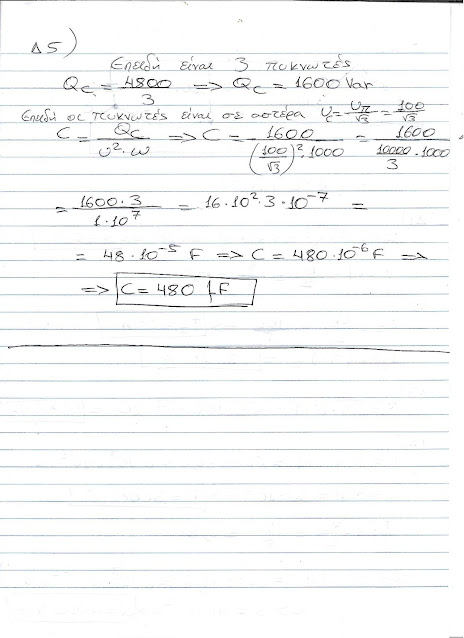 Δ5)
Επειδή είναι 3 πυκνωτές
Qc = 4800/3 => Qc = 1600 Var
Επειδή οι πυκνωτές είναι σε αστέρα Uc = Uπ/√3 = 100/√3
C = Qc/U²·ω => C = 1600/(100/√3)²·1000 = 1600/10000/3·1000
= 1600·3/1·10⁷ = 16·10²·3·10⁻⁷ =
= 48·10⁻⁵ F => C = 480·10⁻⁶ F =>
=> C = 480 μF